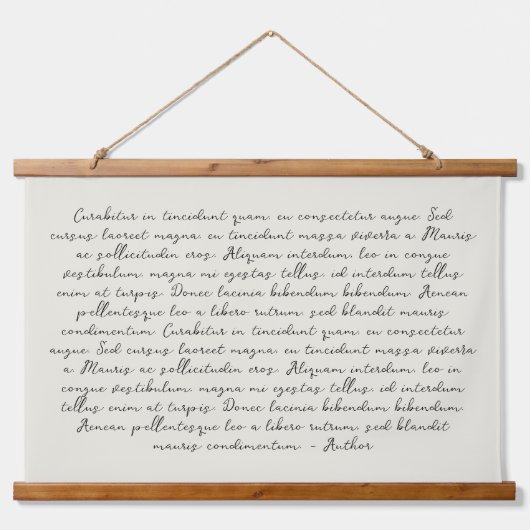 Curabitur in tincidunt quam, eu consectetur augue. Sed
cursus laoreet magna, eu tincidunt massa viverra a. Mauris
ac sollicitudin eros. Aliquam interdum, leo in congue
vestibulum, magna mi egestas tellus, id interdum tellus
enim at turpis. Donec lacinia bibendum bibendum. Aenean
pellentesque leo a libero rutrum, sed blandit mauris
condimentum. Curabitur in tincidunt quam, eu consectetur
augue. Sed cursus laoreet magna, eu tincidunt massa viverra
a. Mauris ac sollicitudin eros. Aliquam interdum, leo in
congue vestibulum, magna mi egestas tellus, id interdum
tellus enim at turpis. Donec lacinia bibendum bibendum.
Aenean pellentesque leo a libero rutrum, sed blandit
mauris condimentum. - Author